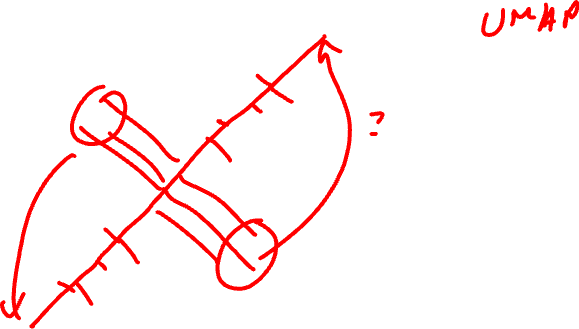 UMAP
?